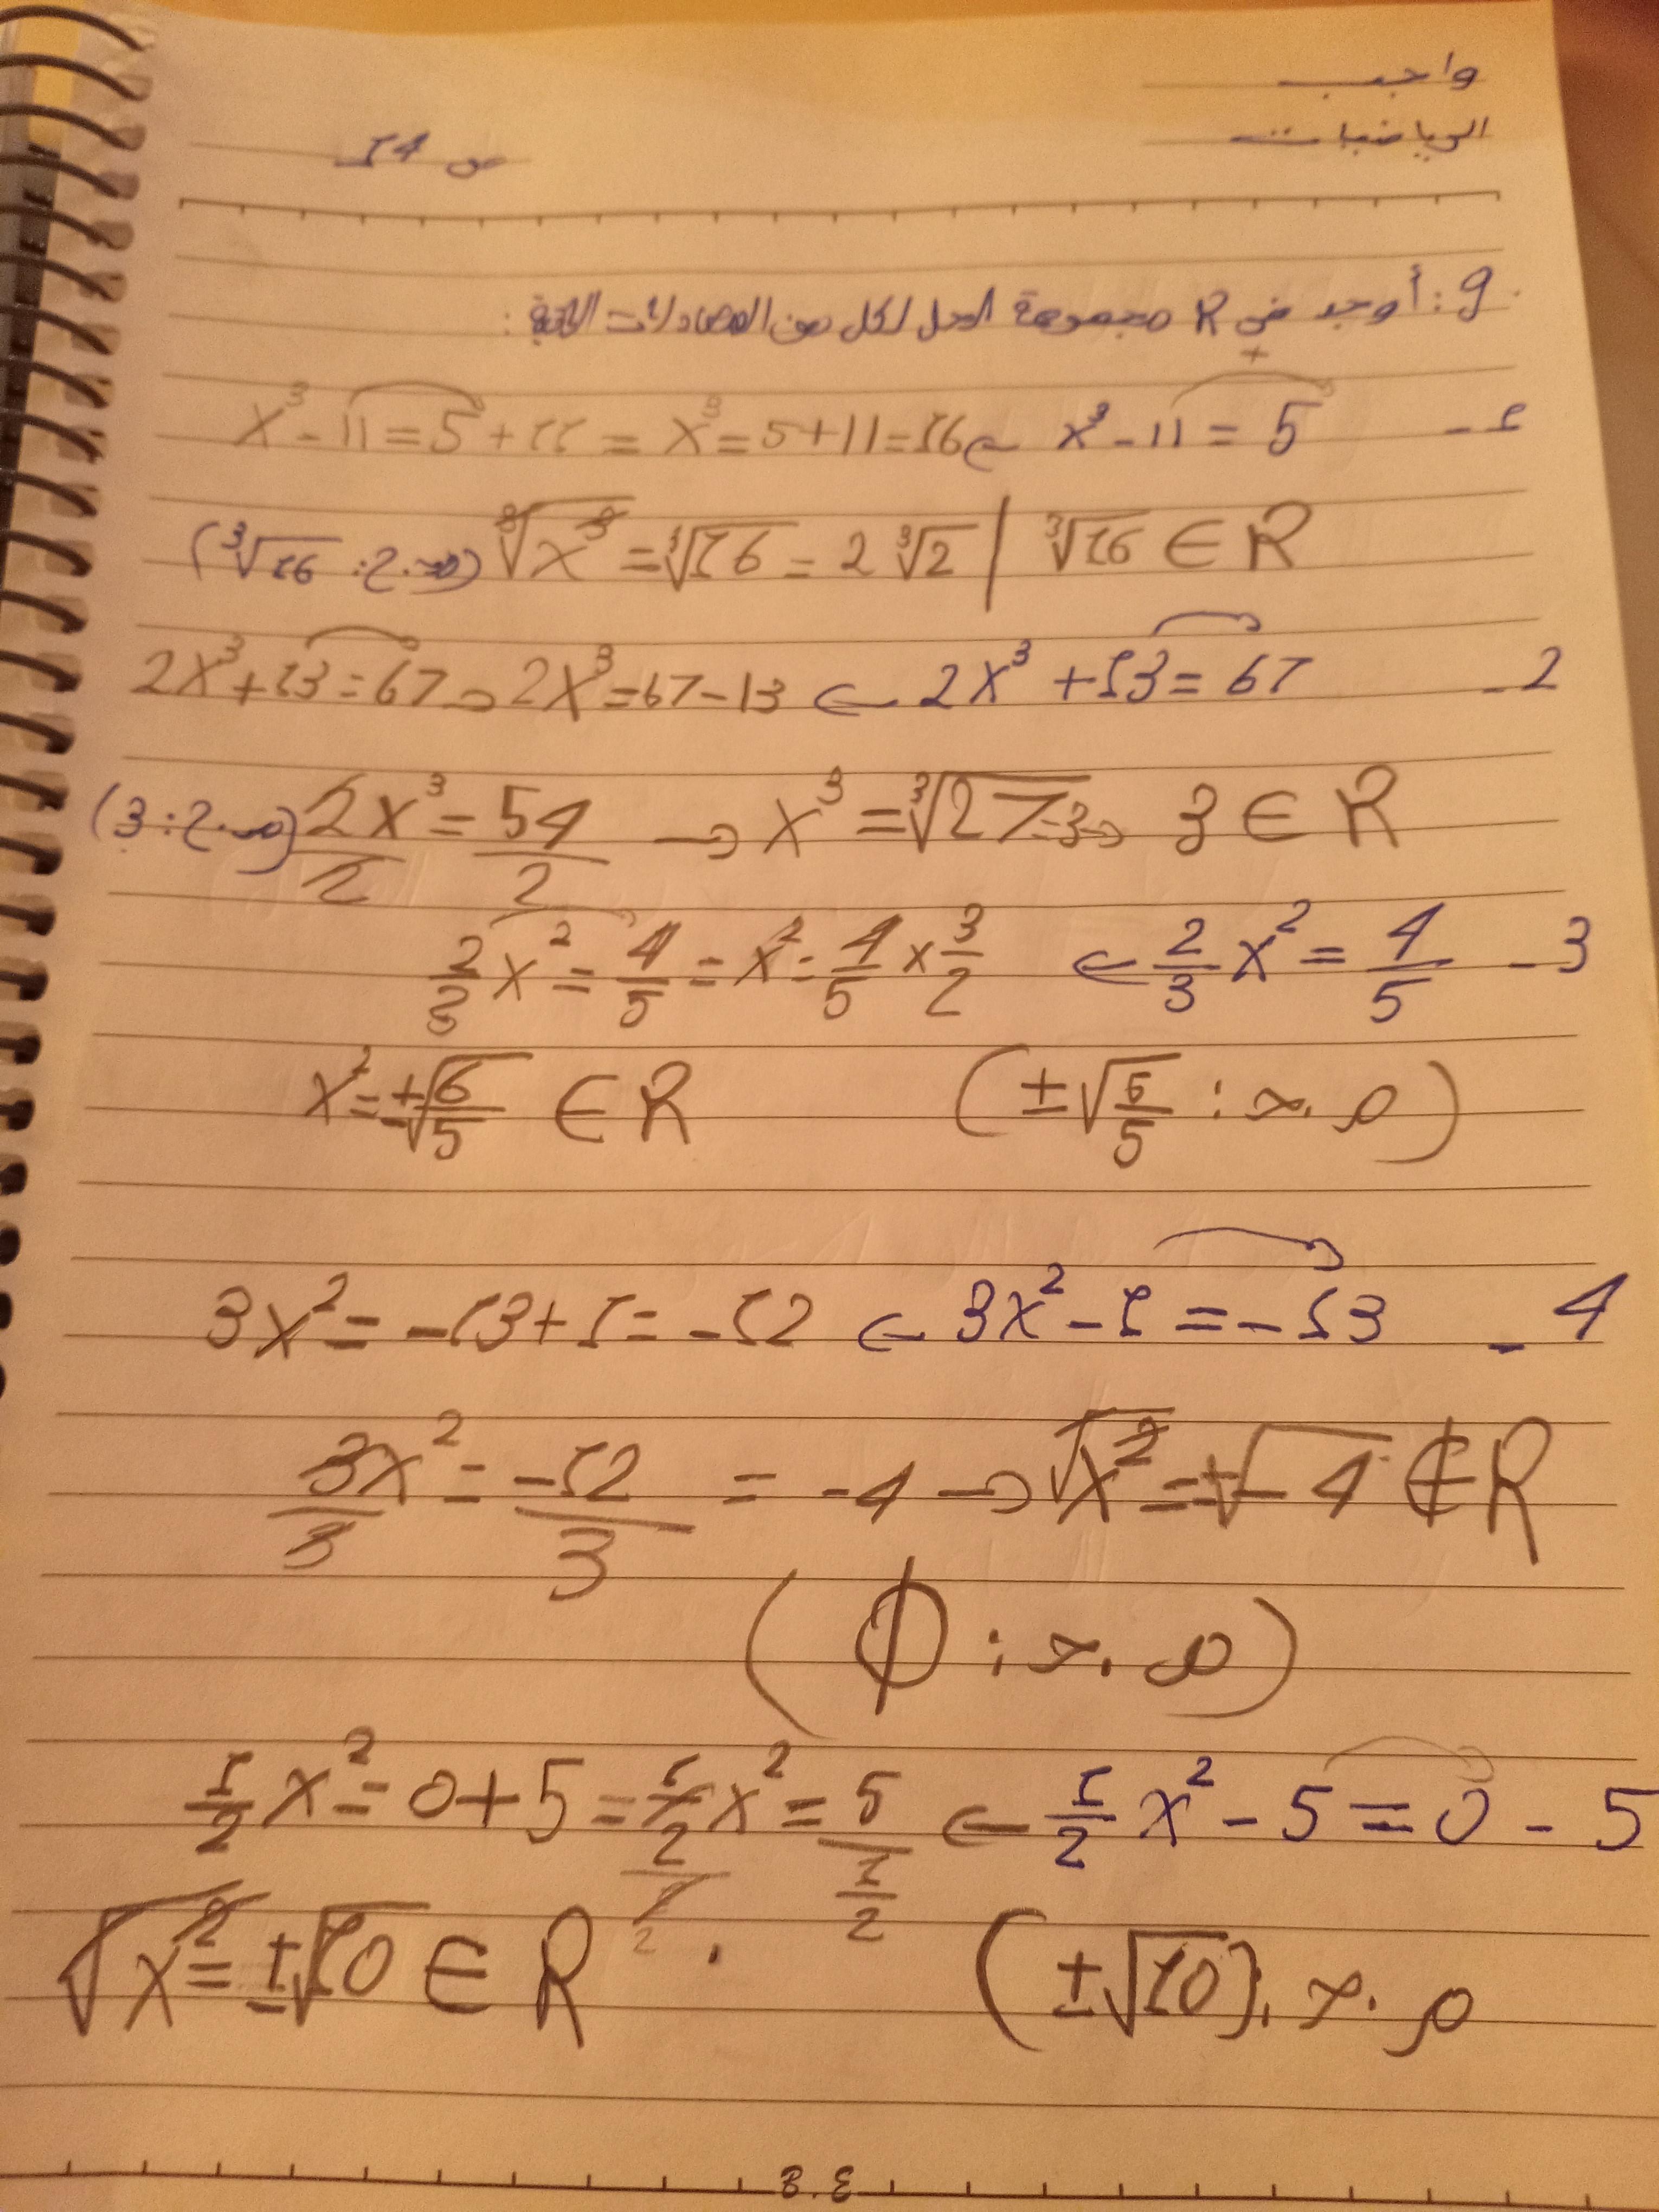 واجب
الرياضيات
ص 14
9: أوجد في R مجموعة الحل لكل من المعادلات الآتية:
1- x³ - 11 = 5 ← x³ - 11 = 5 + 11 = x³ = 5 + 11 = 16
∛x³ = ∛16 = 2∛2 | ∛16 ∈ R (م.ح: ∛16)
2- 2x³ + 13 = 67 ← 2x³ + 13 = 67 → 2x³ = 67 - 13
2x³/2 = 54/2 → x³ = ∛27 = 3 → 3 ∈ R (م.ح: 3)
3- 2/3 x² = 4/5 ← 2/3 x² = 4/5 = x² = 4/5 × 3/2
x² = ±√6/5 ∈ R (م.ح: ±√6/5)
4- 3x² - 1 = -13 ← 3x² = -13 + 1 = -12
3x²/3 = -12/3 = -4 → √x² = ±√-4 ∉ R
(م.ح: Φ)
5- 1/2 x² - 5 = 0 ← 1/2 x² = 0 + 5 = 1/2 x² / 1/2 = 5 / 1/2
√x² = ±√10 ∈ R م.ح: (±√10)
B.E